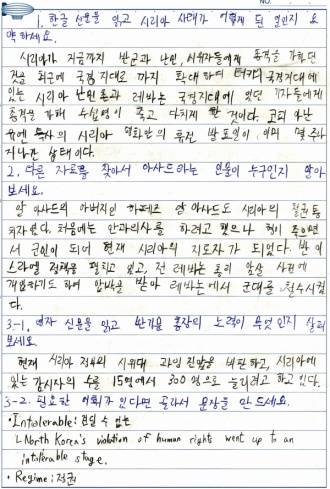 NO.
1. 한글 신문을 읽고 시리아 사태가 어떻게 된 일인지 요
약 하세요.
시리아가 지금까지 반군과 난민, 시위자들에게 총격을 가하던
것을 최근에 국경지대로 까지 확대하여 터키 국경지대에
있는 시리아 난민촌과 레바논 국경지대에 있던 기자들에게
총격을 가해 수십명이 죽고 다치게 한 것이다. 코피 아난
유엔 특사의 시리아 평화안의 휴전 발표일이 이미 몇 주나
지나간 상태이다.
2. 다른 자료를 찾아서 아사드라는 인물이 누구인지 알아
보세요.
알 아사드의 아버지인 하페즈 알 아사드도 시리아의 절권통
치자였다. 처음에는 안과의사를 하려고 했으나 형이 죽으면
서 군인이 되어 현재 시리아의 지도자가 되었다. 반 이
스라엘 정책을 펼치고 있고, 전 레바논 총리 암살 사건에
개입하기도 하여 압박을 받아 레바논에서 군대를 철수시켰
다.
3-1. 영자 신문을 읽고 반기문 총장의 노력이 무엇인지 살펴
보세요.
현재 시리아 정부의 시위대 과잉진압을 비판하고, 시리아에
있는 감시사의 수를 15명에서 300명으로 늘리려고 하고 있다.
3-2. 필요한 어휘가 있다면 골라서 문장을 만드세요.
• Intolerable : 견딜 수 없는
ㄴ North Korea's violation of human rights went up to an
intolerable stage.
• Regime : 정권